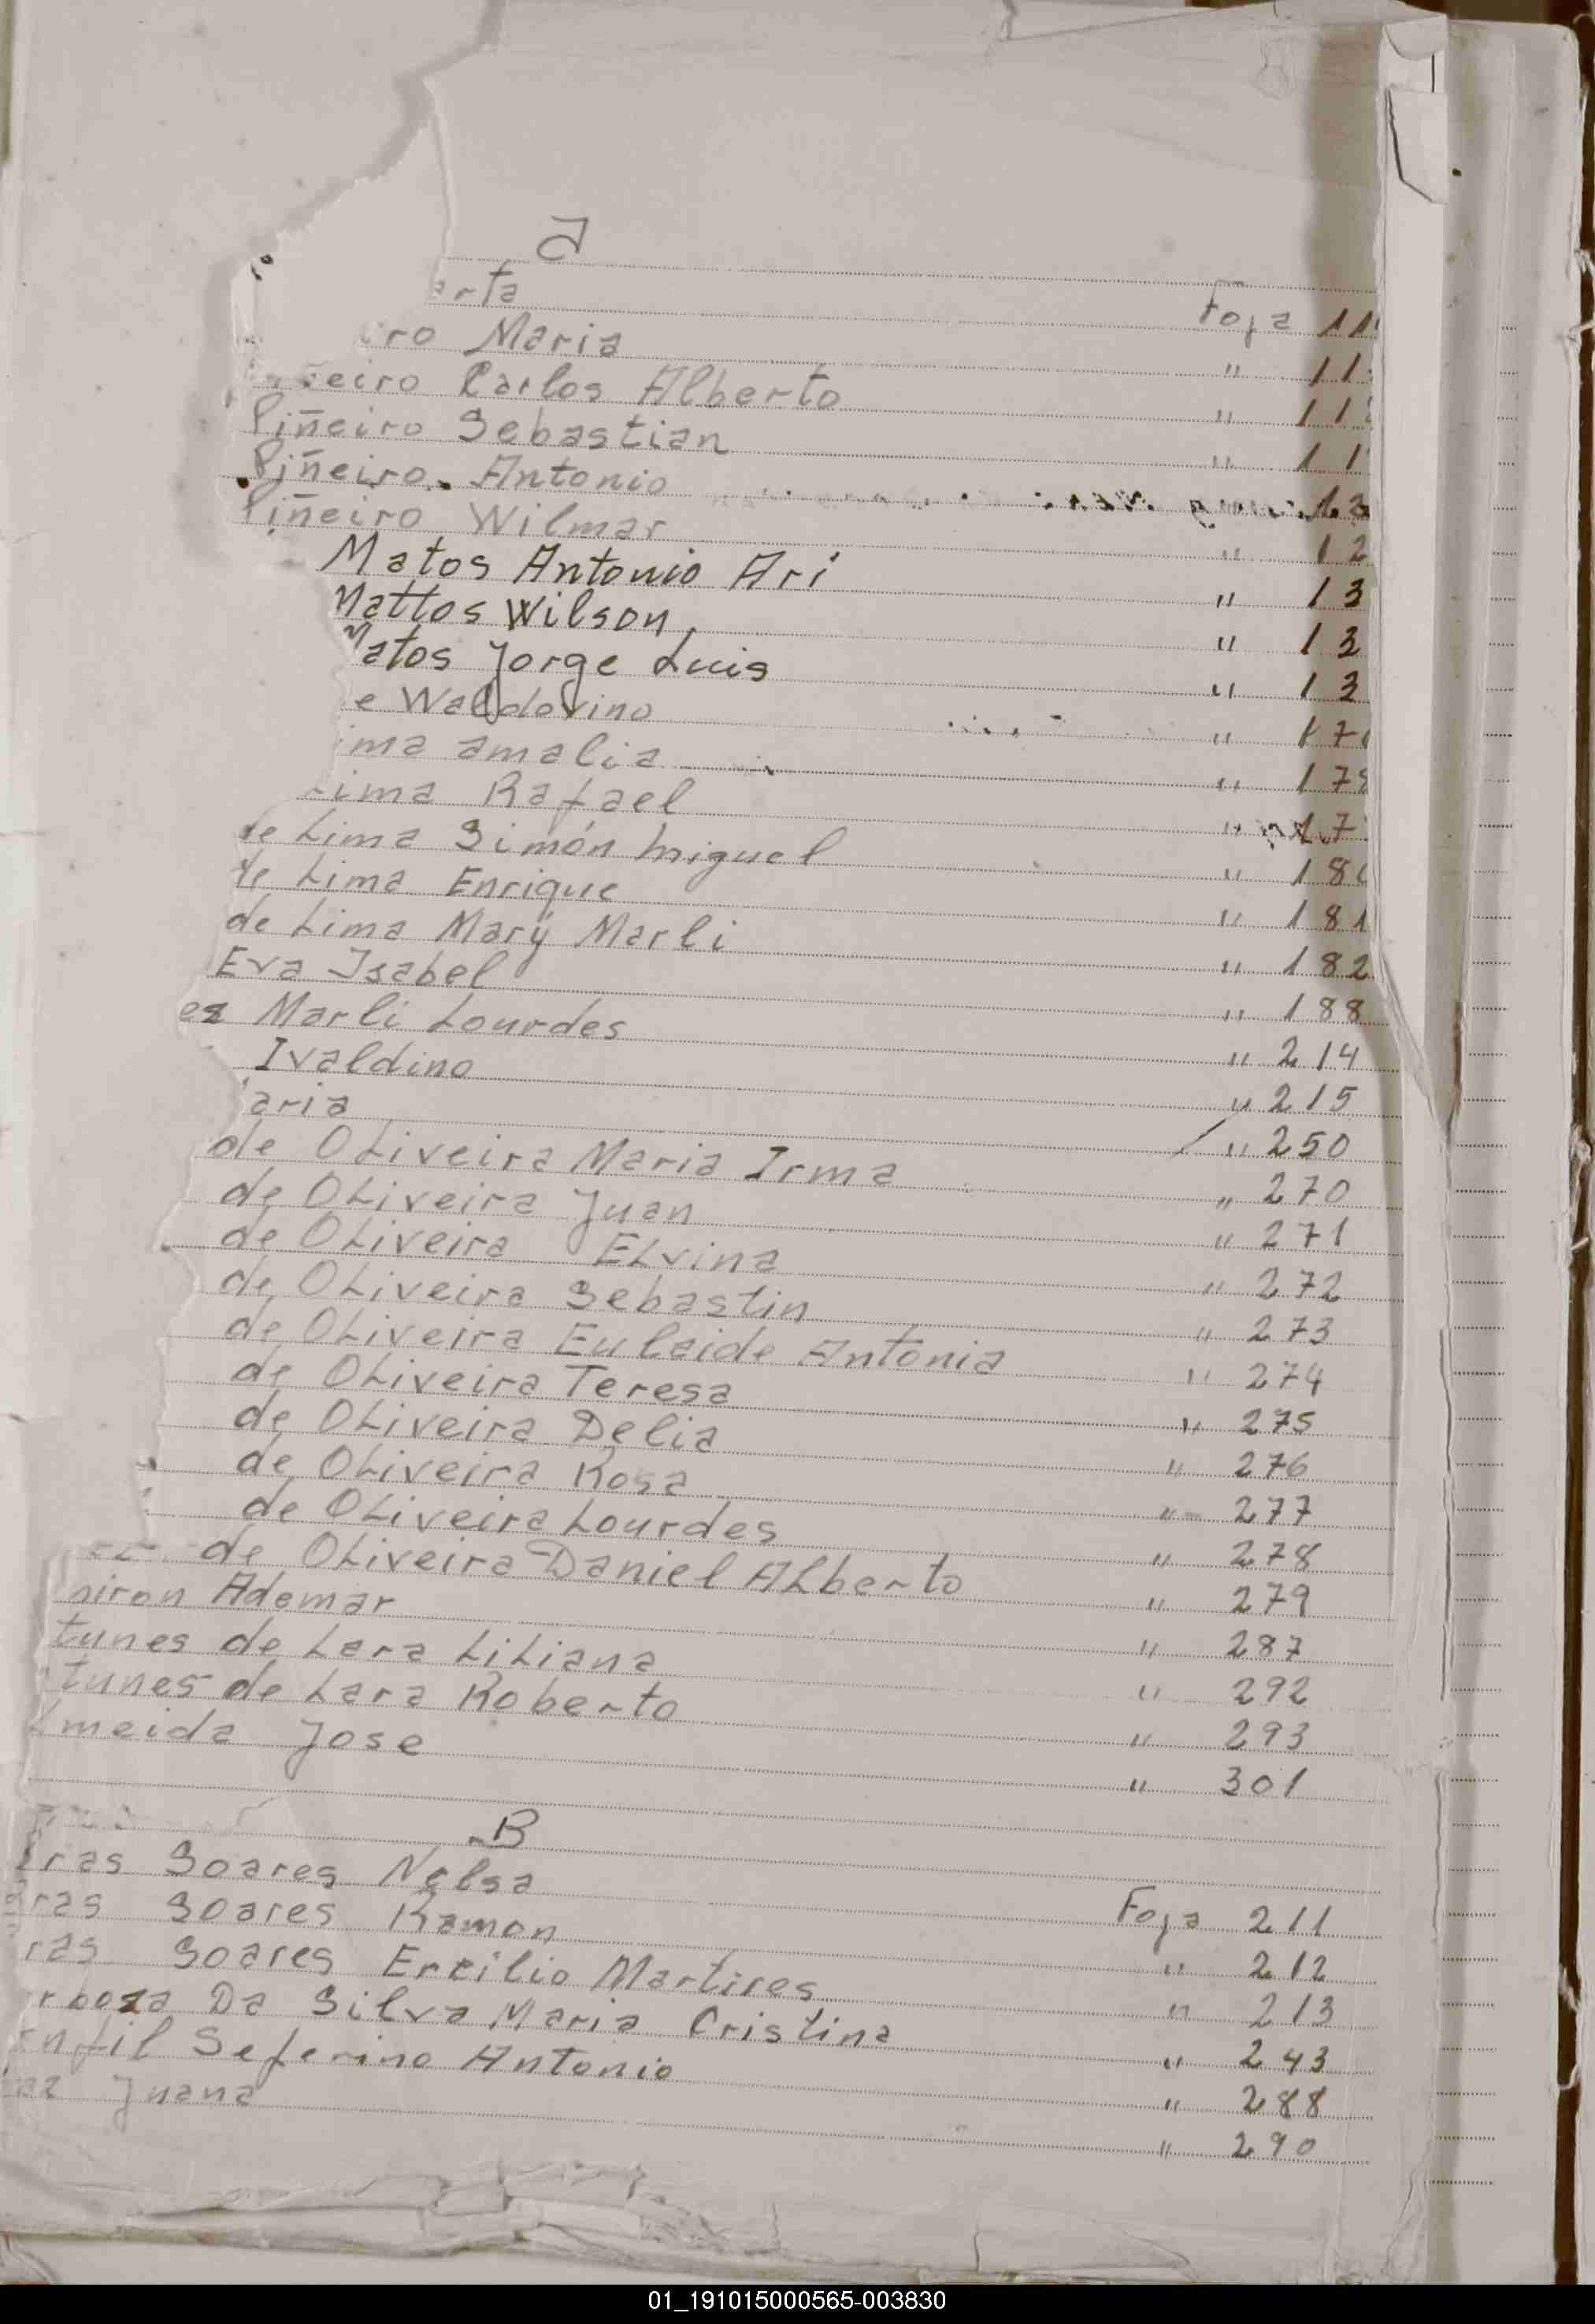 a
arta Foja 11
iro Maria " 11
eiro Carlos Alberto " 11
Piñeiro Sebastian " 11
Piñeiro Antonio 12
Piñeiro Wilmar " 12
Matos Antonio Ari " 13
Mattos Wilson " 13
Matos Jorge Luis " 13
e Waldovino " 17
ima amalia " 179
Lima Rafael " 17
de Lima Simón Miguel " 180
de Lima Enrique " 181
de Lima Mary Marli " 182
Eva Isabel " 188
ez Marli Lourdes " 214
Ivaldino " 215
aria " 250
de OLiveira Maria Irma " 270
de OLiveira Juan " 271
de OLiveira ELvina " 272
de OLiveira Sebastin " 273
de OLiveira Eulaide Antonia " 274
de OLiveira Teresa " 275
de OLiveira Delia " 276
de OLiveira Rosa " 277
de OLiveira Lourdes " 278
de OLiveira Daniel ALberto " 279
niron Ademar " 287
tunes de Lara LiLiana " 292
tunes de Lara Roberto " 293
lmeida Jose " 301
B
rras Soares Nelsa Foja 211
rras Soares Ramon " 212
ras Soares Ercilio Martires " 213
rboza Da Silva Maria Cristina " 243
nfil Seferino Antonio " 288
az Juana " 290
01_191015000565-003830